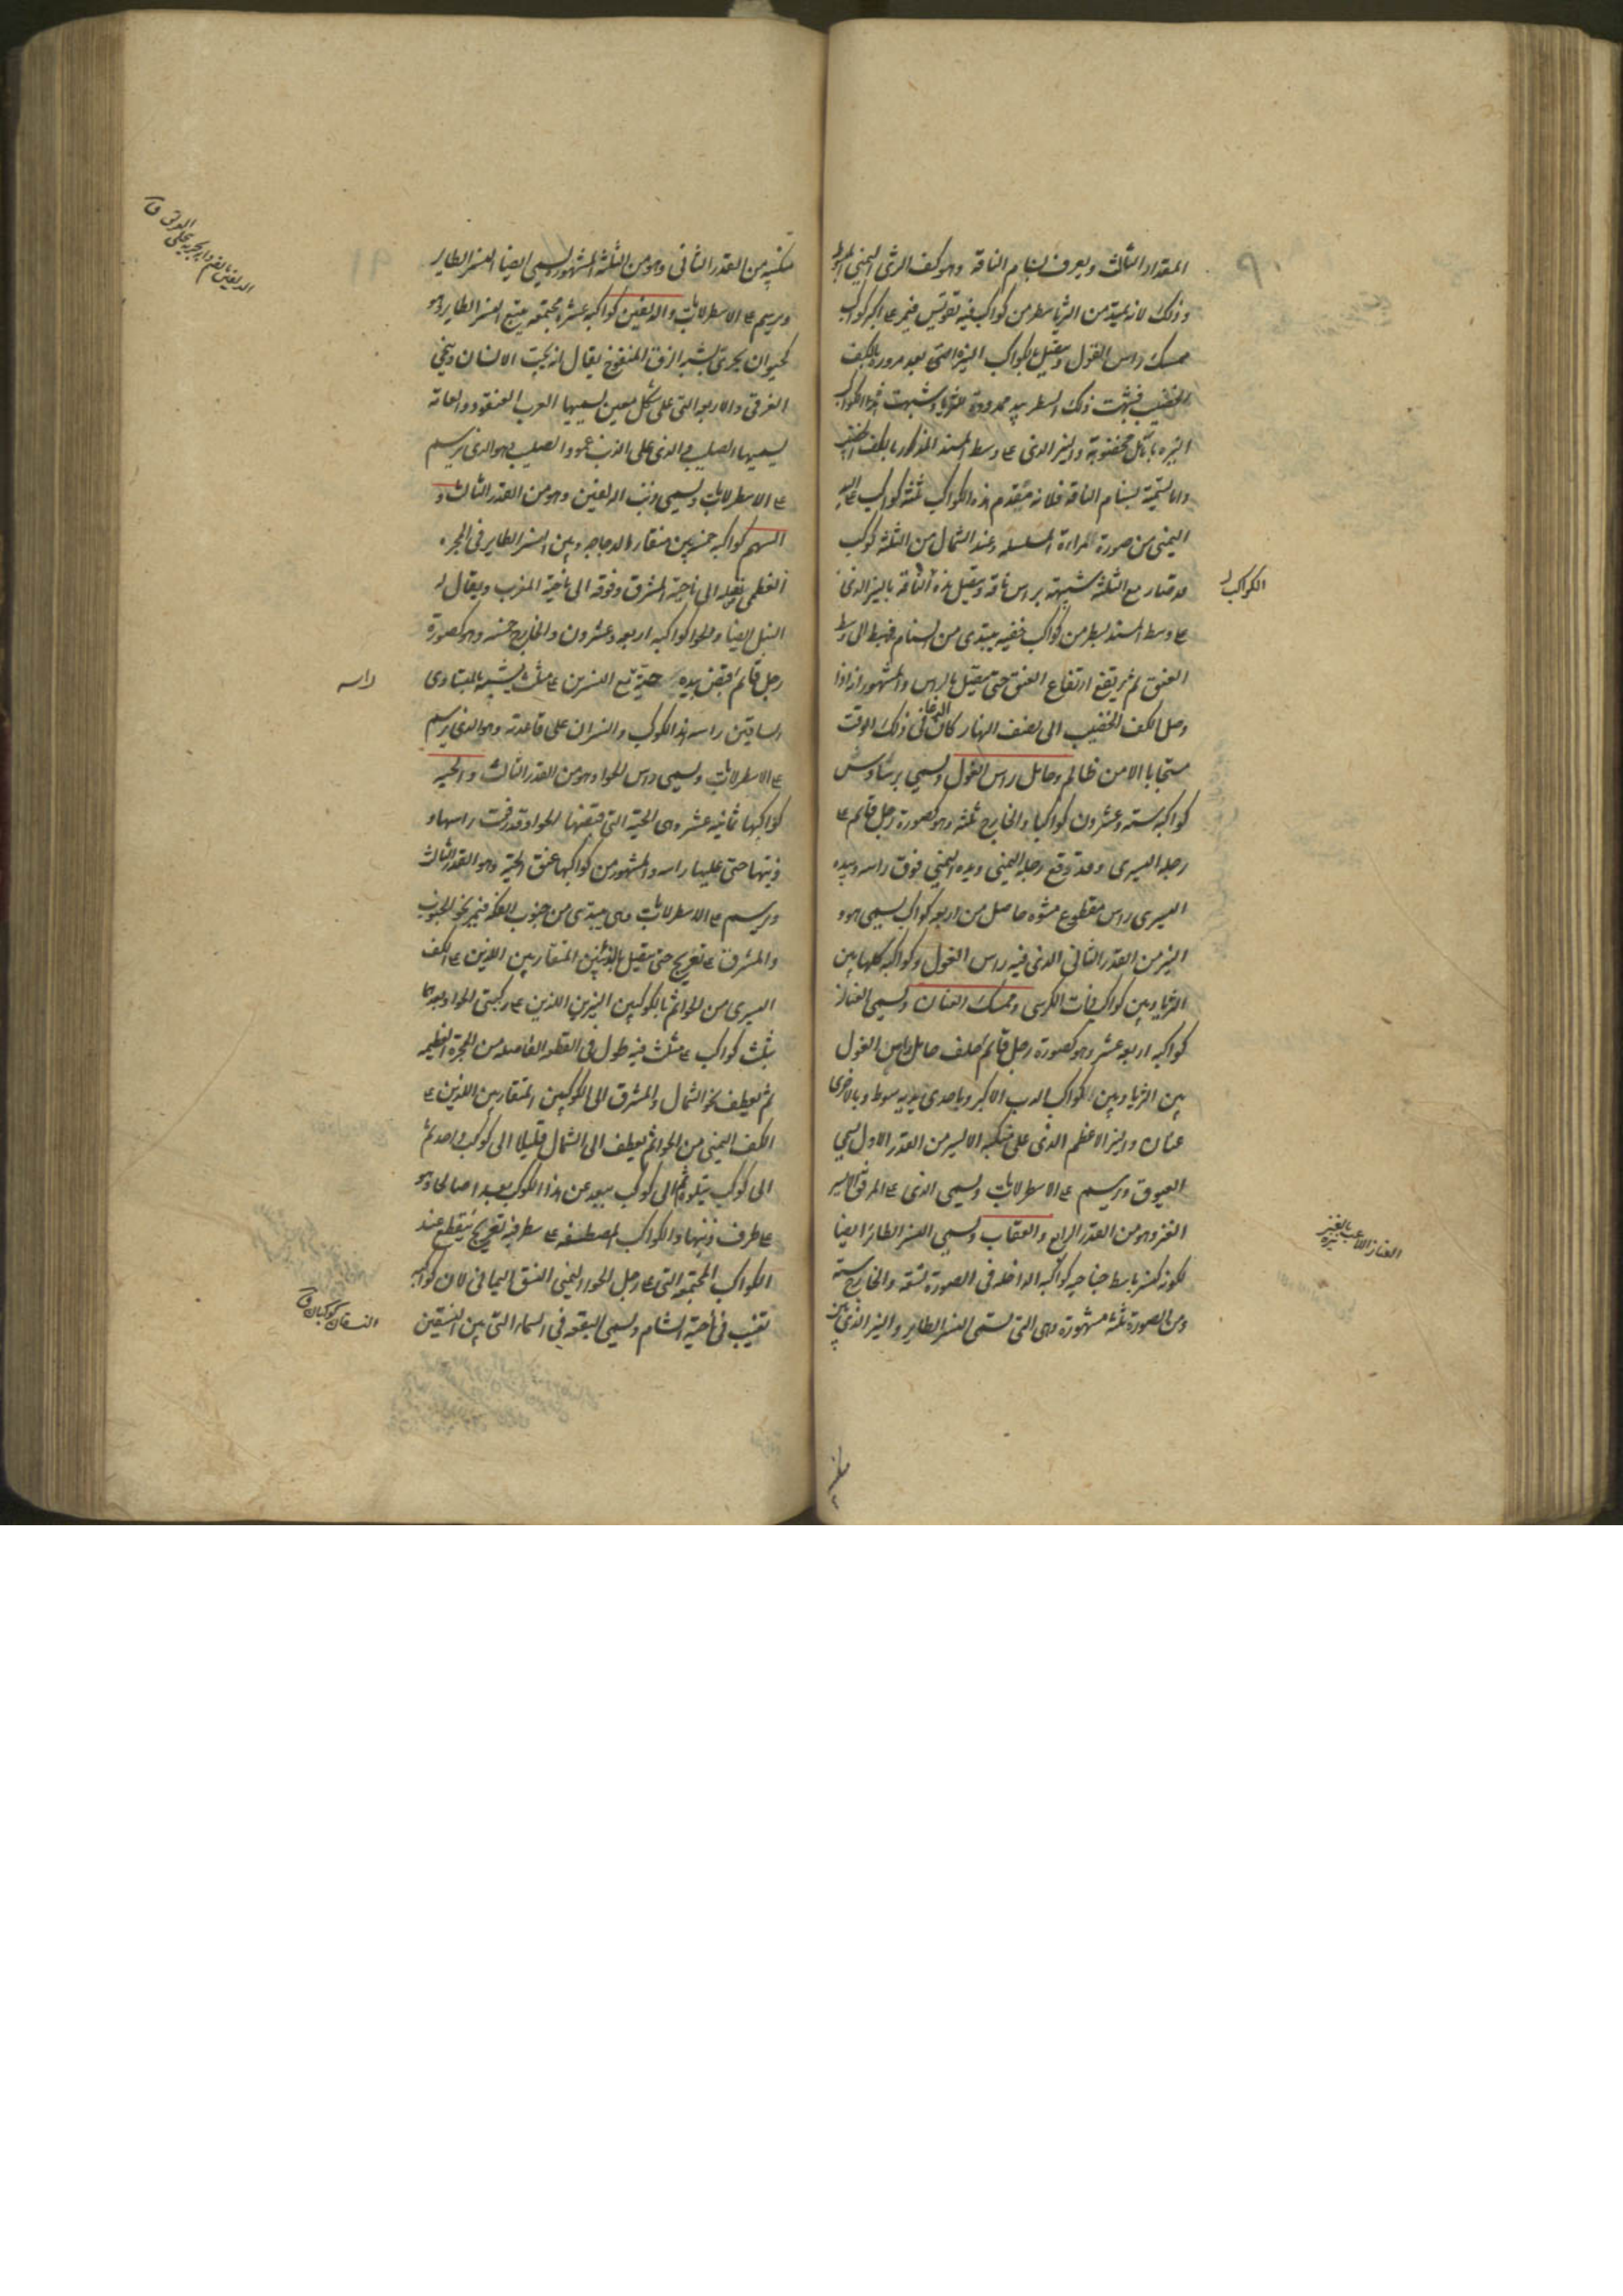 المقدار الثالث ويعرف بسنام الناقة وهو كف الثريا اليمنى المبسوطة
وذلك لانه يمتد من الثريا سطر من كواكب فيه تقويس فيمر على اكبر كواكب
ممسك راس الغول ويتصل بكواكب النيرة حتى بعد مروره بالكف
الخضيب فشبهت ذلك السطر بيد ممدودة للثريا وشبهت هذه الكواكب
النيرة بانامل مخضوبة والنير الذى على وسط المسند المذكور بالكف الخضيب
واما تسميته بسنام الناقة فلانه يتقدم هذه الكواكب ثلثة كواكب على اليد
اليمنى من صورة المراءة المسلسله وعند الشمال من الثلثة كوكب
قد صار مع الثلثة شبيهة براس ناقة ويتصل هذه الناقة بالنير الذى
على وسط المسند بسطر من كواكب خفيه يبتدى من السنام فيهبط الى وسط
العنق ثم يرتفع ارتفاع العنق حتى يتصل بالراس والمشهور انه اذا
وصل الكف الخضيب الى نصف النهار كان الدعا فى ذلك الوقت
مستجابا الا من ظالم وحامل راس الغول ويسمى برشاوش
كواكبه ستة وعشرون كوكبا والخارج ثلثة وهو كصورة رجل قايم على
رجله اليسرى وقد رفع رجله اليمنى ويده اليمنى فوق راسه وبيده
اليسرى راس مقطوع مشوه حاصل من اربعة كواكب يسمى هو و
النير من القدر الثانى الذى فيه راس الغول وكواكبه كلها بين
الثريا وبين كواكب ذات الكرسى وممسك العنان ويسمى العناز
كواكبه اربعة عشر وهو كصورة رجل قايم خلف حامل راس الغول
بين الثريا وبين كواكب الدب الاكبر وباحدى يديه سوط وبالاخرى
عنان والنير الاعظم الذى على منكبه الايسر من القدر الاول يسمى
العيوق ويرسم على الاسطرلابات ويسمى الذى على المرفق الايسر
العنز وهو من القدر الرابع والعقاب ويسمى النسر الطائر ايضا
لكونه كنسر باسط جناحيه كواكبه الداخلة فى الصورة تسعة والخارج ستة
ومن الصورة ثلثة مشهورة وهى التى تسمى النسر الطاير والنير الذى بين
الكواكب
العناز اللاعب بالعنز
منكبيه من القدر الثانى وهو من الثلثة المشهور ويسمى ايضا النسر الطاير
ويرسم على الاسطرلابات والدلفين كواكبه عشرة مجتمعه يتبع النسر الطاير وهو
كحيوان بحرى يشبه الزق المنفوخ يقال انه يحب الانسان وينجى
الغرقى والاربعة التى على شكل معين يسميها العرب العنقود والعامة
يسميها الصليب والذى على الذنب عمود الصليب وهو الذى يرسم
على الاسطرلابات ويسمى ذنب الدلفين وهو من القدر الثالث و
السهم كواكبه خمسة بين منقار الدجاجه وبين النسر الطاير فى المجرة
العظمى ونصله الى ناحية المشرق وفوقه الى ناحية المغرب ويقال له
النبل ايضا والحوا كواكبه اربعه وعشرون والخارج خمسه وهو كصورة
رجل قايم قبض بيديه حية مع النسرين على مثلث يشبه بالمتساوى
الساقين راسه هذا الكوكب والنسران على قاعدته وهو الذى يرسم
على الاسطرلابات ويسمى راس الحوا وهو من القدر الثالث والحيه
كواكبها ثمانية عشر وهى الحية التى قبضها الحوا وقد رفعت راسها و
ذنبها حتى عليها راسه والمشهور من كواكبها عنق الحية وهو القدر الثالث
ويرسم على الاسطرلابات وهى يبتدى من جنوب الفكة فيمر نحو الجنوب
والمشرق على تعريج حتى يتصل بالنيرين المتقاربين الذين على الكف
اليسرى من الحوا ثم بالكوكبين النيرين اللذين على ركبتى الحوا وبعدهما
بثلث كواكب على مثلث فيه طول فى القطعه الفاصله من المجرة العظيمه
ثم يعطف نحو الشمال والمشرق الى الكوكبين المتقاربين اللذين على
الكف اليمنى من الحوا ثم يعطف الى الشمال قليلا الى كوكب واحد ثم
الى كوكب يتلوه ثم الى كوكب يبعد عن هذا الكوكب بعدا صالحا وهو
على طرف ذنبها والكواكب المصطفه على سطر فيه تعريج ينقطع عند
الكواكب المجتمعة التى على رجل الحوا اليمنى النسق اليمانى لان كواكبه
تغيب فى ناحية الشام ويسمى البقعه فى السماء التى بين النسقين
راسه
النسقان كوكبان ق